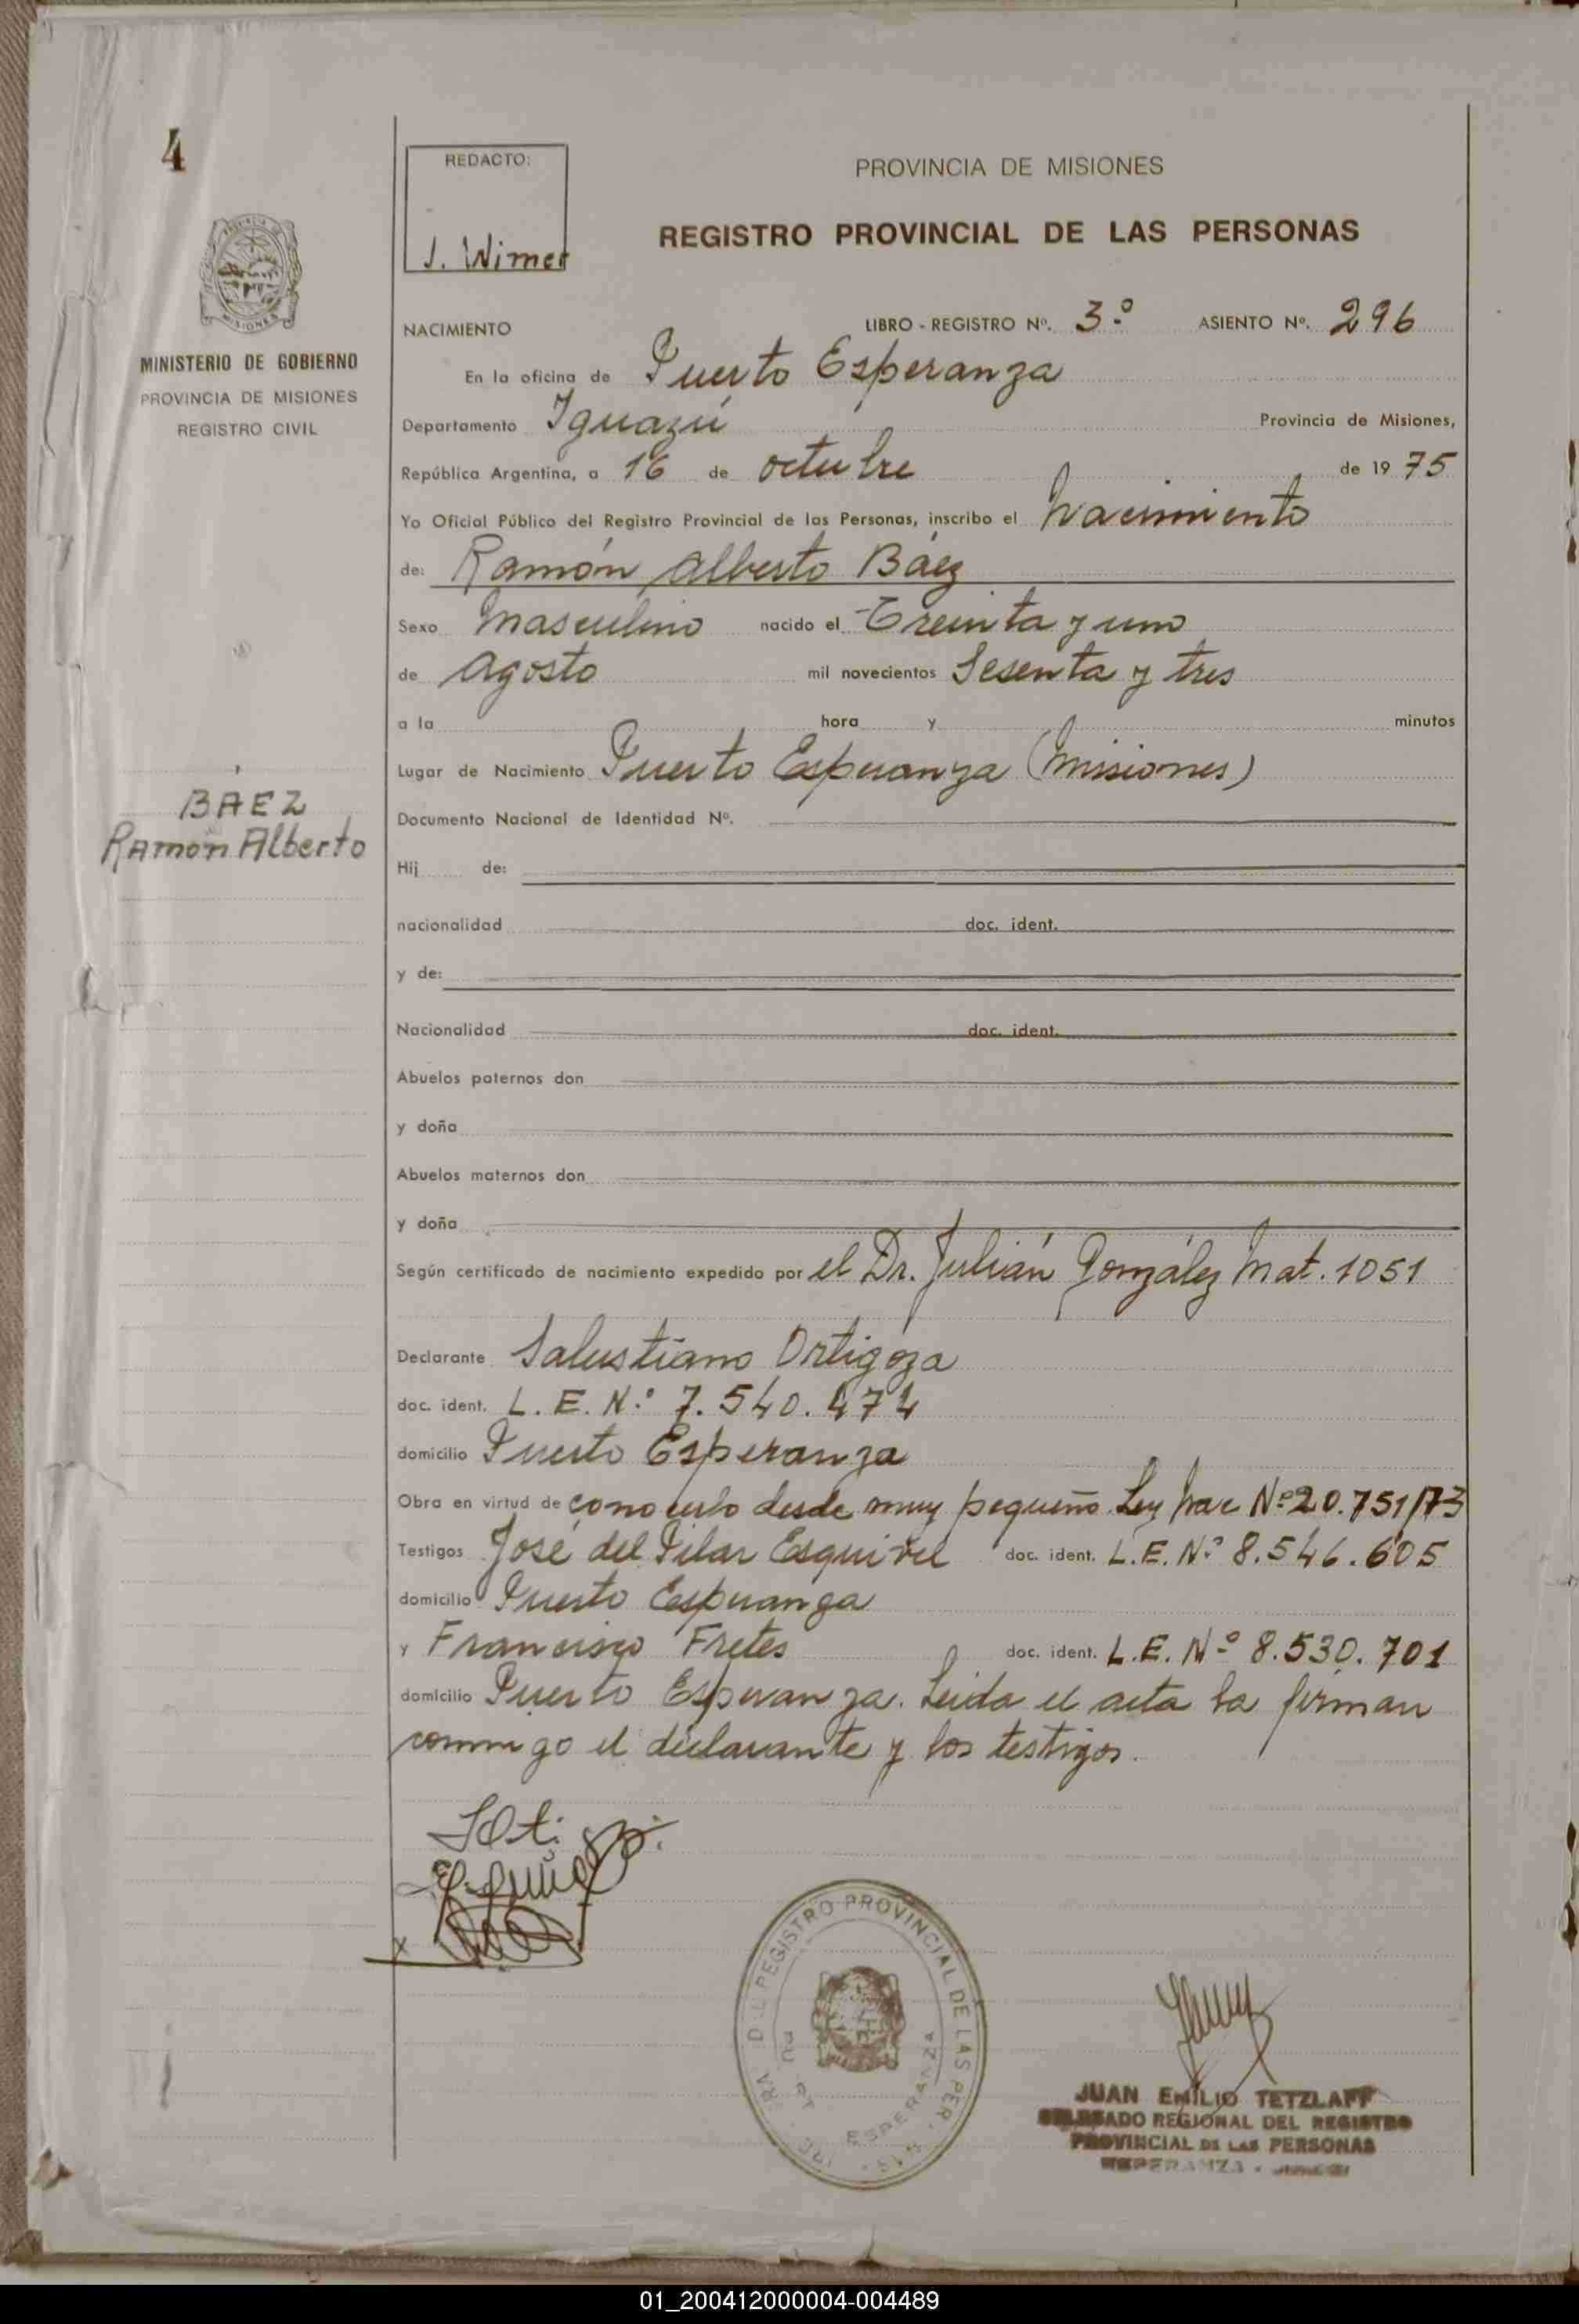 4
REDACTO:
J. Wimer
PROVINCIA DE MISIONES
REGISTRO PROVINCIAL DE LAS PERSONAS
MISIONES
MINISTERIO DE GOBIERNO
PROVINCIA DE MISIONES
REGISTRO CIVIL
NACIMIENTO LIBRO - REGISTRO Nº. 3º ASIENTO Nº. 296
En la oficina de Puerto Esperanza
Departamento Iguazú Provincia de Misiones,
República Argentina, a 16 de octubre de 19 75
Yo Oficial Público del Registro Provincial de las Personas, inscribo el Nacimiento
de: Ramón Alberto Báez
Sexo Masculino nacido el Treinta y uno
de Agosto mil novecientos Sesenta y tres
a la hora y minutos
Lugar de Nacimiento Puerto Esperanza (Misiones)
BÁEZ
Ramón Alberto
Documento Nacional de Identidad Nº.
Hij de:
nacionalidad doc. ident.
y de:
Nacionalidad doc. ident.
Abuelos paternos don
y doña
Abuelos maternos don
y doña
Según certificado de nacimiento expedido por el Dr. Julián González Mat. 1051
Declarante Salustiano Ortigoza
doc. ident. L. E. N.º 7.540.474
domicilio Puerto Esperanza
Obra en virtud de conocerlo desde muy pequeño. Ley Nac Nº 20.751/73
Testigos José del Pilar Esquivel doc. ident. L.E. Nº 8.546.605
domicilio Puerto Esperanza
y Francisco Fretes doc. ident. L.E. Nº 8.530.701
domicilio Puerto Esperanza. Leida el acta la firman
conmigo el declarante y los testigos.
REGISTRO PROVINCIAL DE LAS PER
ESPERANZA
JUAN EMILIO TETZLAFF
DELEGADO REGIONAL DEL REGISTRO
PROVINCIAL DE LAS PERSONAS
ESPERANZA
01_200412000004-004489